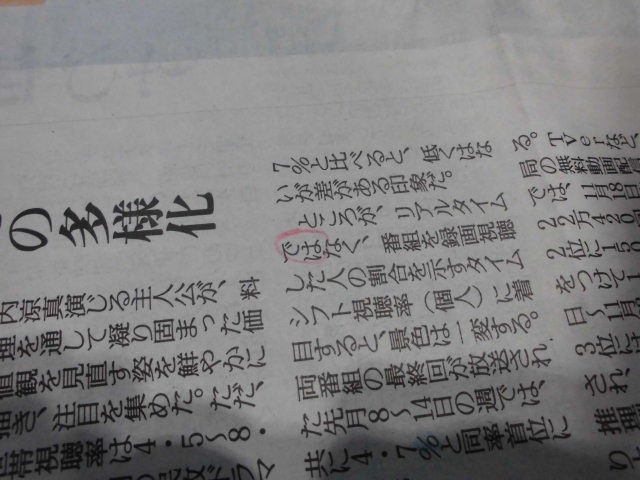 の多様化
内涼真演じる主人公が、料
理を通して凝り固まった価
値観を見直す姿を鮮やかに
描き、注目を集めた。ただ、
帯視聴率は4・5〜8・
ドラマ
7%と比べると、低くはな
いが差がある印象だ。
ところが、リアルタイム
ではなく、番組を録画視聴
した人の割合を示すタイム
シフト視聴率（個人）に着
目すると、景色は一変する。
両番組の最終回が放送され
た先月8〜14日の週では、
共に4・7%と同率首位に
る。TVerなど、
の無料動画配信
では、11月8日
22万420
2位に150
をつけて1
日〜11月
3位に
され、
推理
り